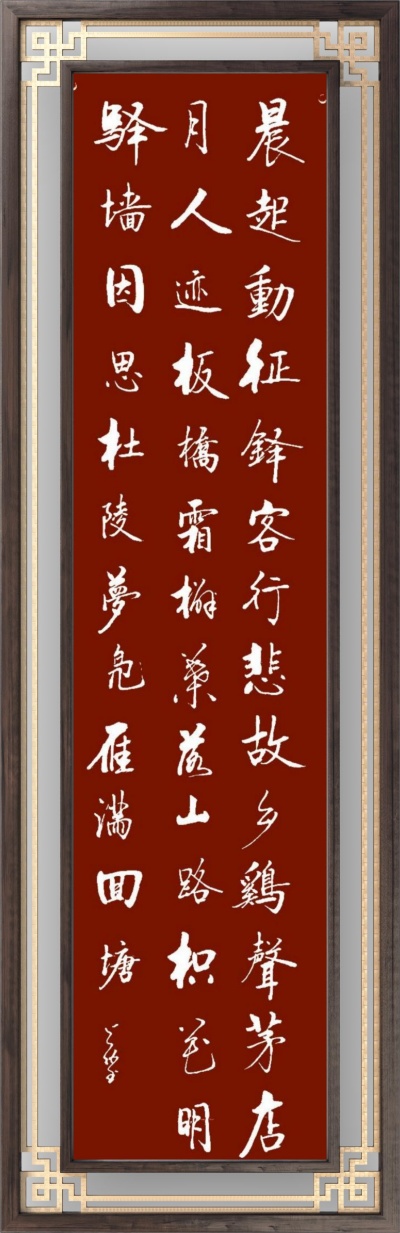 晨起動征铎客行悲故乡鷄聲茅店
月人迹板橋霜槲葉落山路枳花明
驿墙因思杜陵夢凫雁满回塘